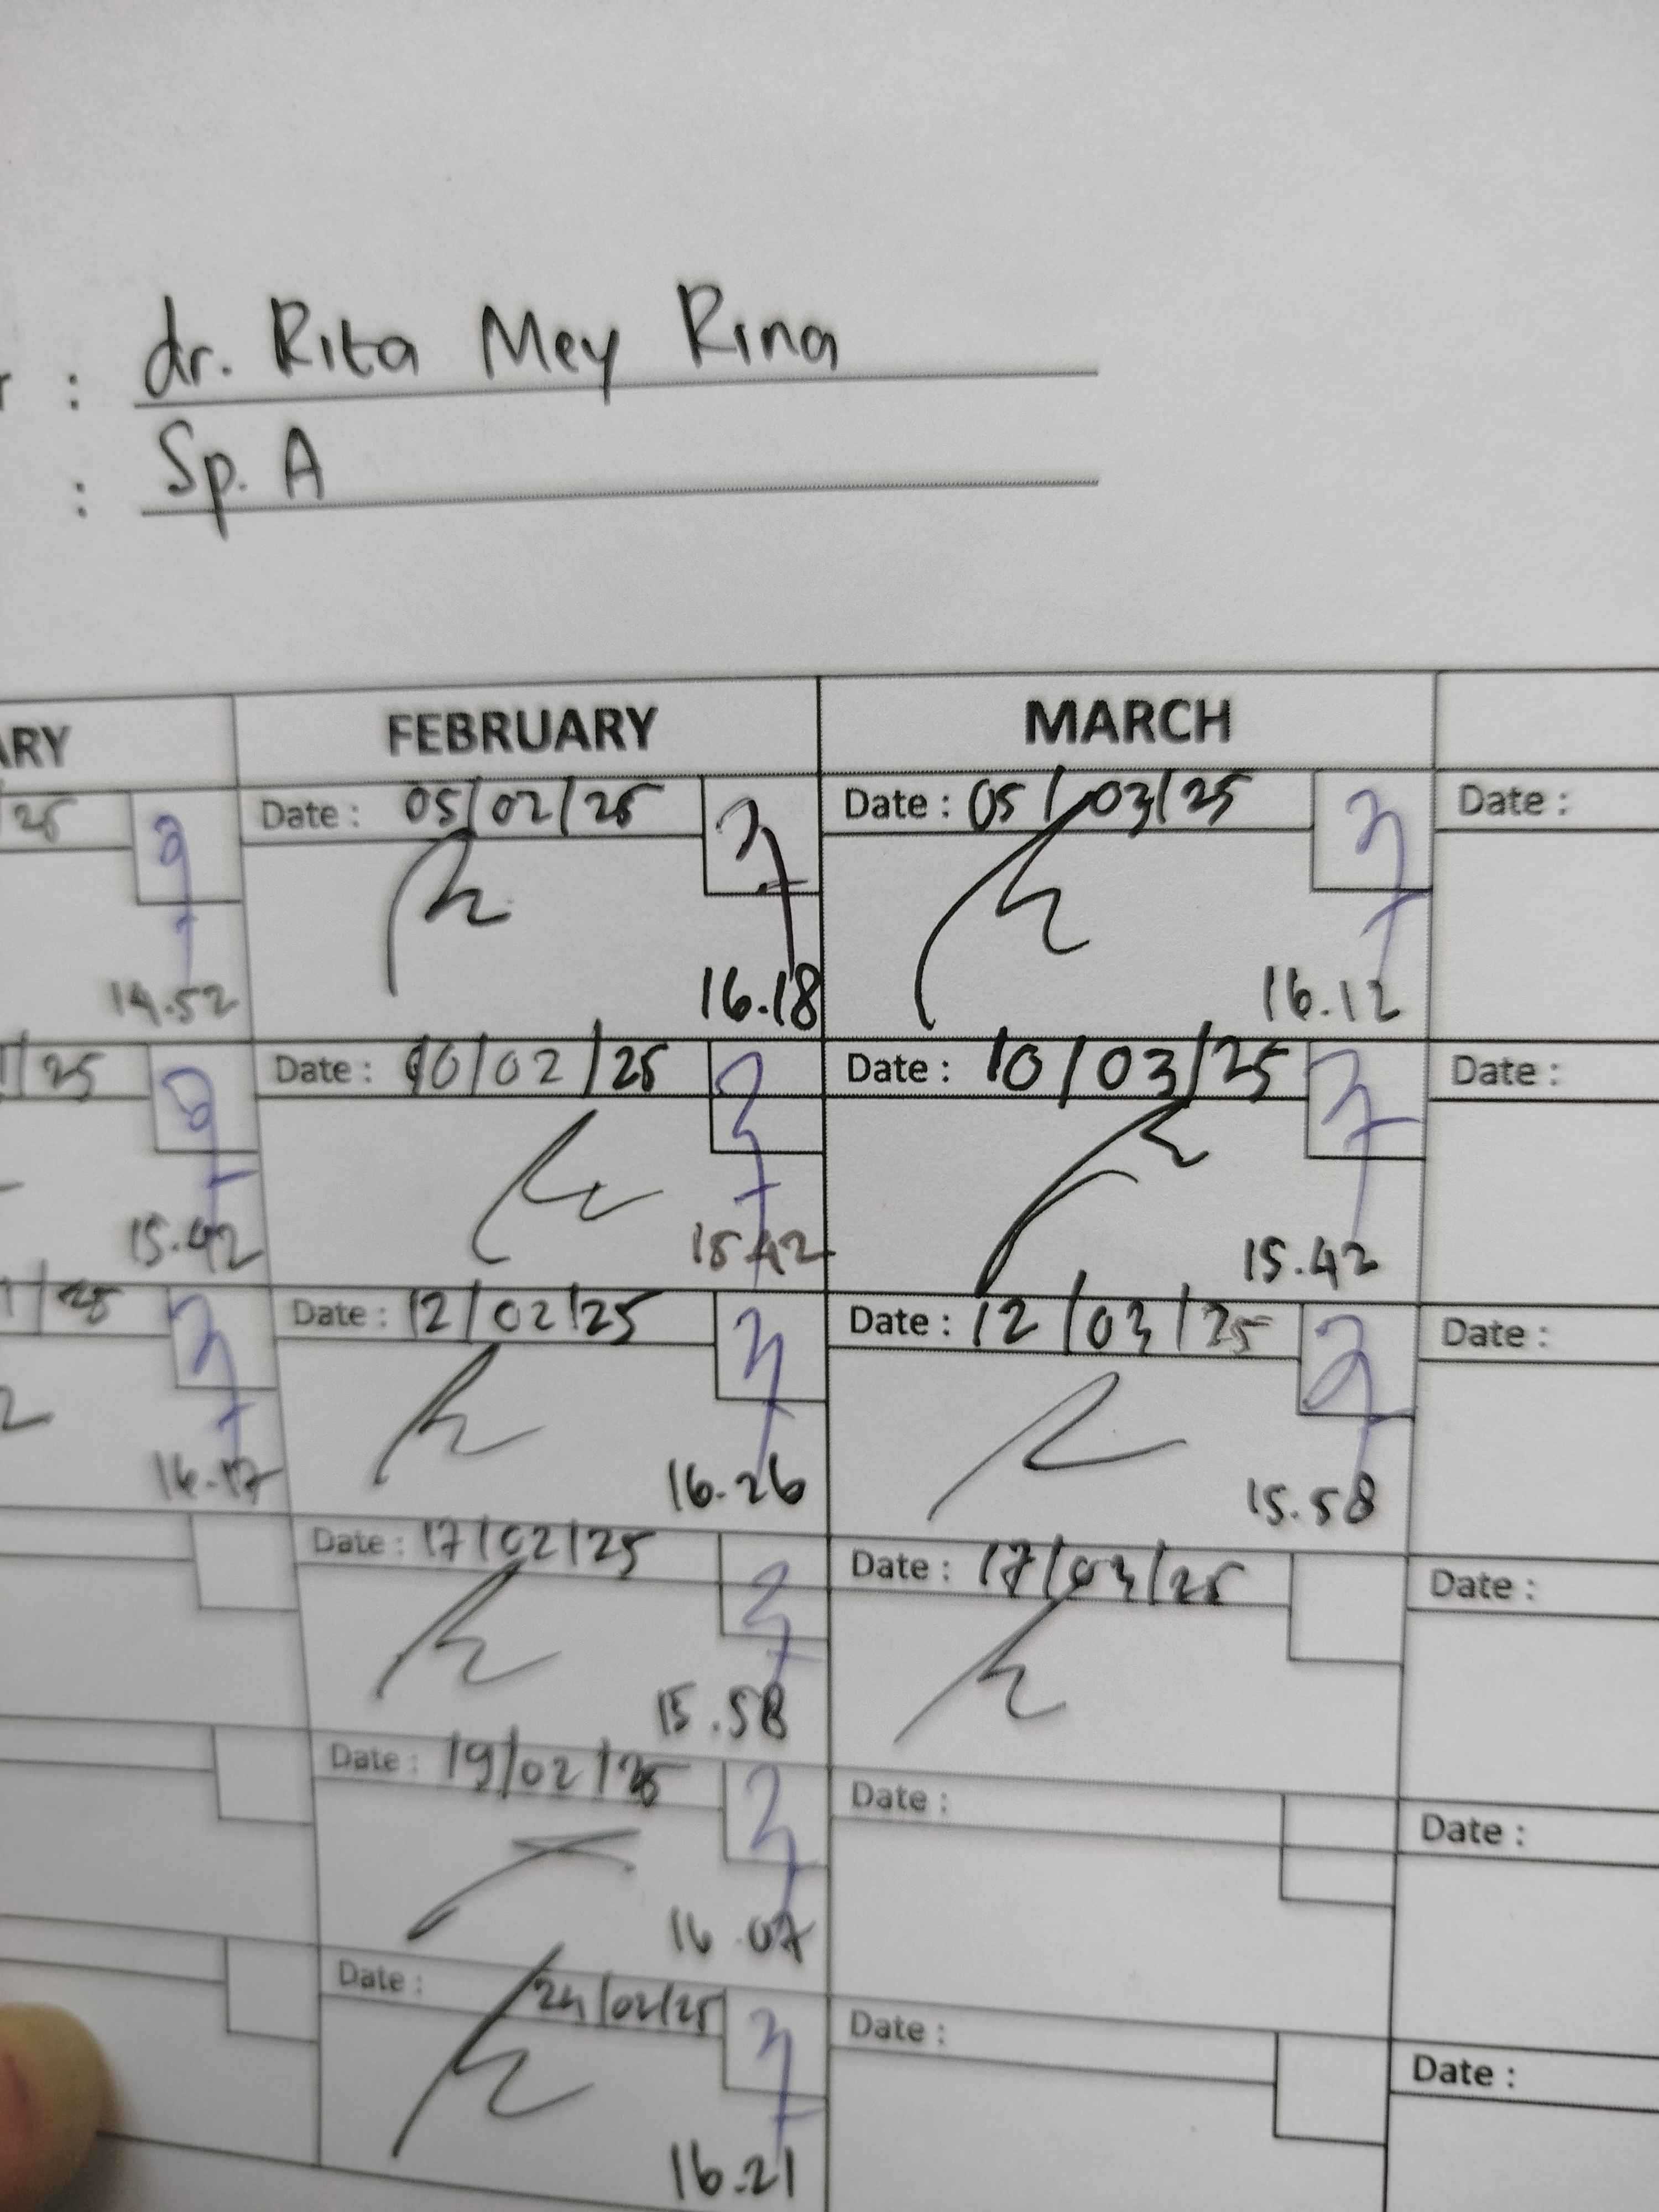 : dr. Rita Mey Rina
: Sp. A
ARY FEBRUARY MARCH
/25 Date : 05/02/25 Date : 05/03/25 Date :
14.52 16.18 16.12
/25 Date : 10/02/25 Date : 10/03/25 Date :
15.42 15.42 15.42
/25 Date : 12/02/25 Date : 12/03/25 Date :
16.17 16.26 15.58
Date : 17/02/25 Date : 17/03/25 Date :
15.58
Date : 19/02/25 Date : Date :
16.07
Date : 24/02/25 Date : Date :
16.21